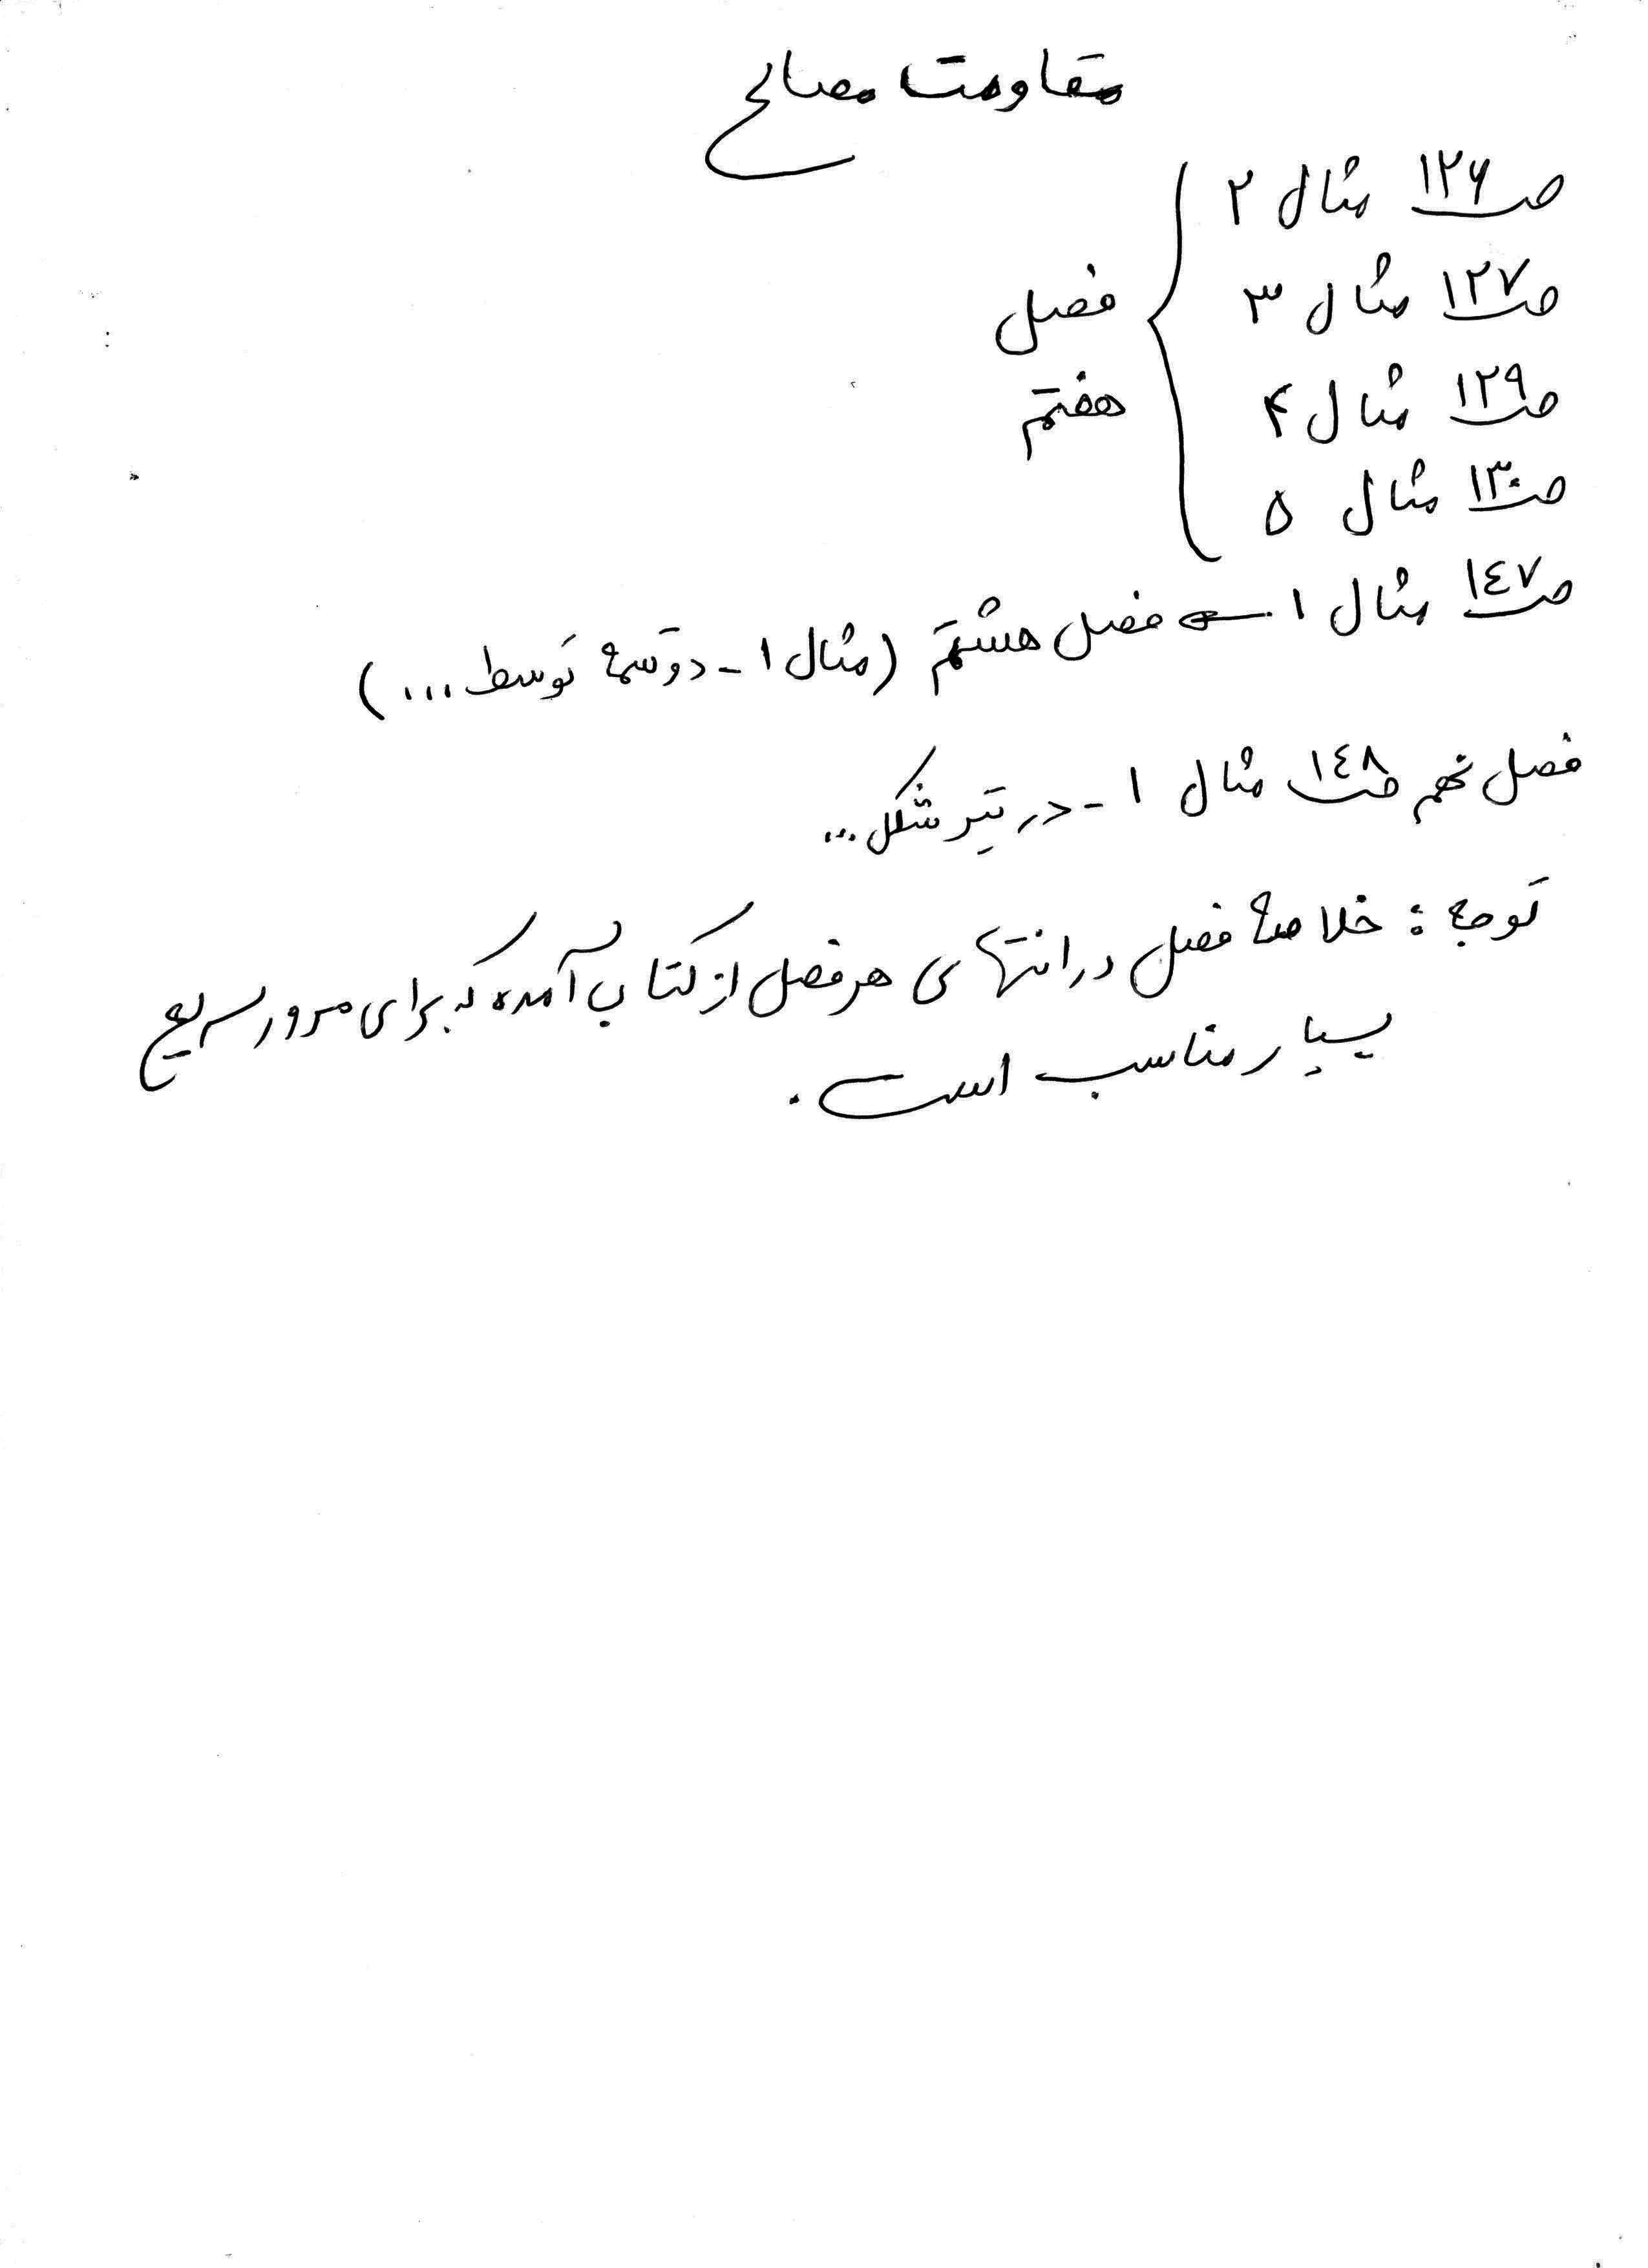 مقاومت مصالح
ص ۱۲۶ مثال ۲
ص ۱۲۷ مثال ۳
ص ۱۲۹ مثال ۴
ص ۱۳۰ مثال ۵
فصل
هفتم
ص ۱٤۷ مثال ۱ ← فصل هشتم (مثال ۱ - دو تسمه توسط ...)
فصل نهم ص ۱٤۸ مثال ۱ - در تیر شکل ...
توجه : خلاصه فصل در انتهای هر فصل از کتاب آمده که برای مرور سریع
بسیار مناسب است .